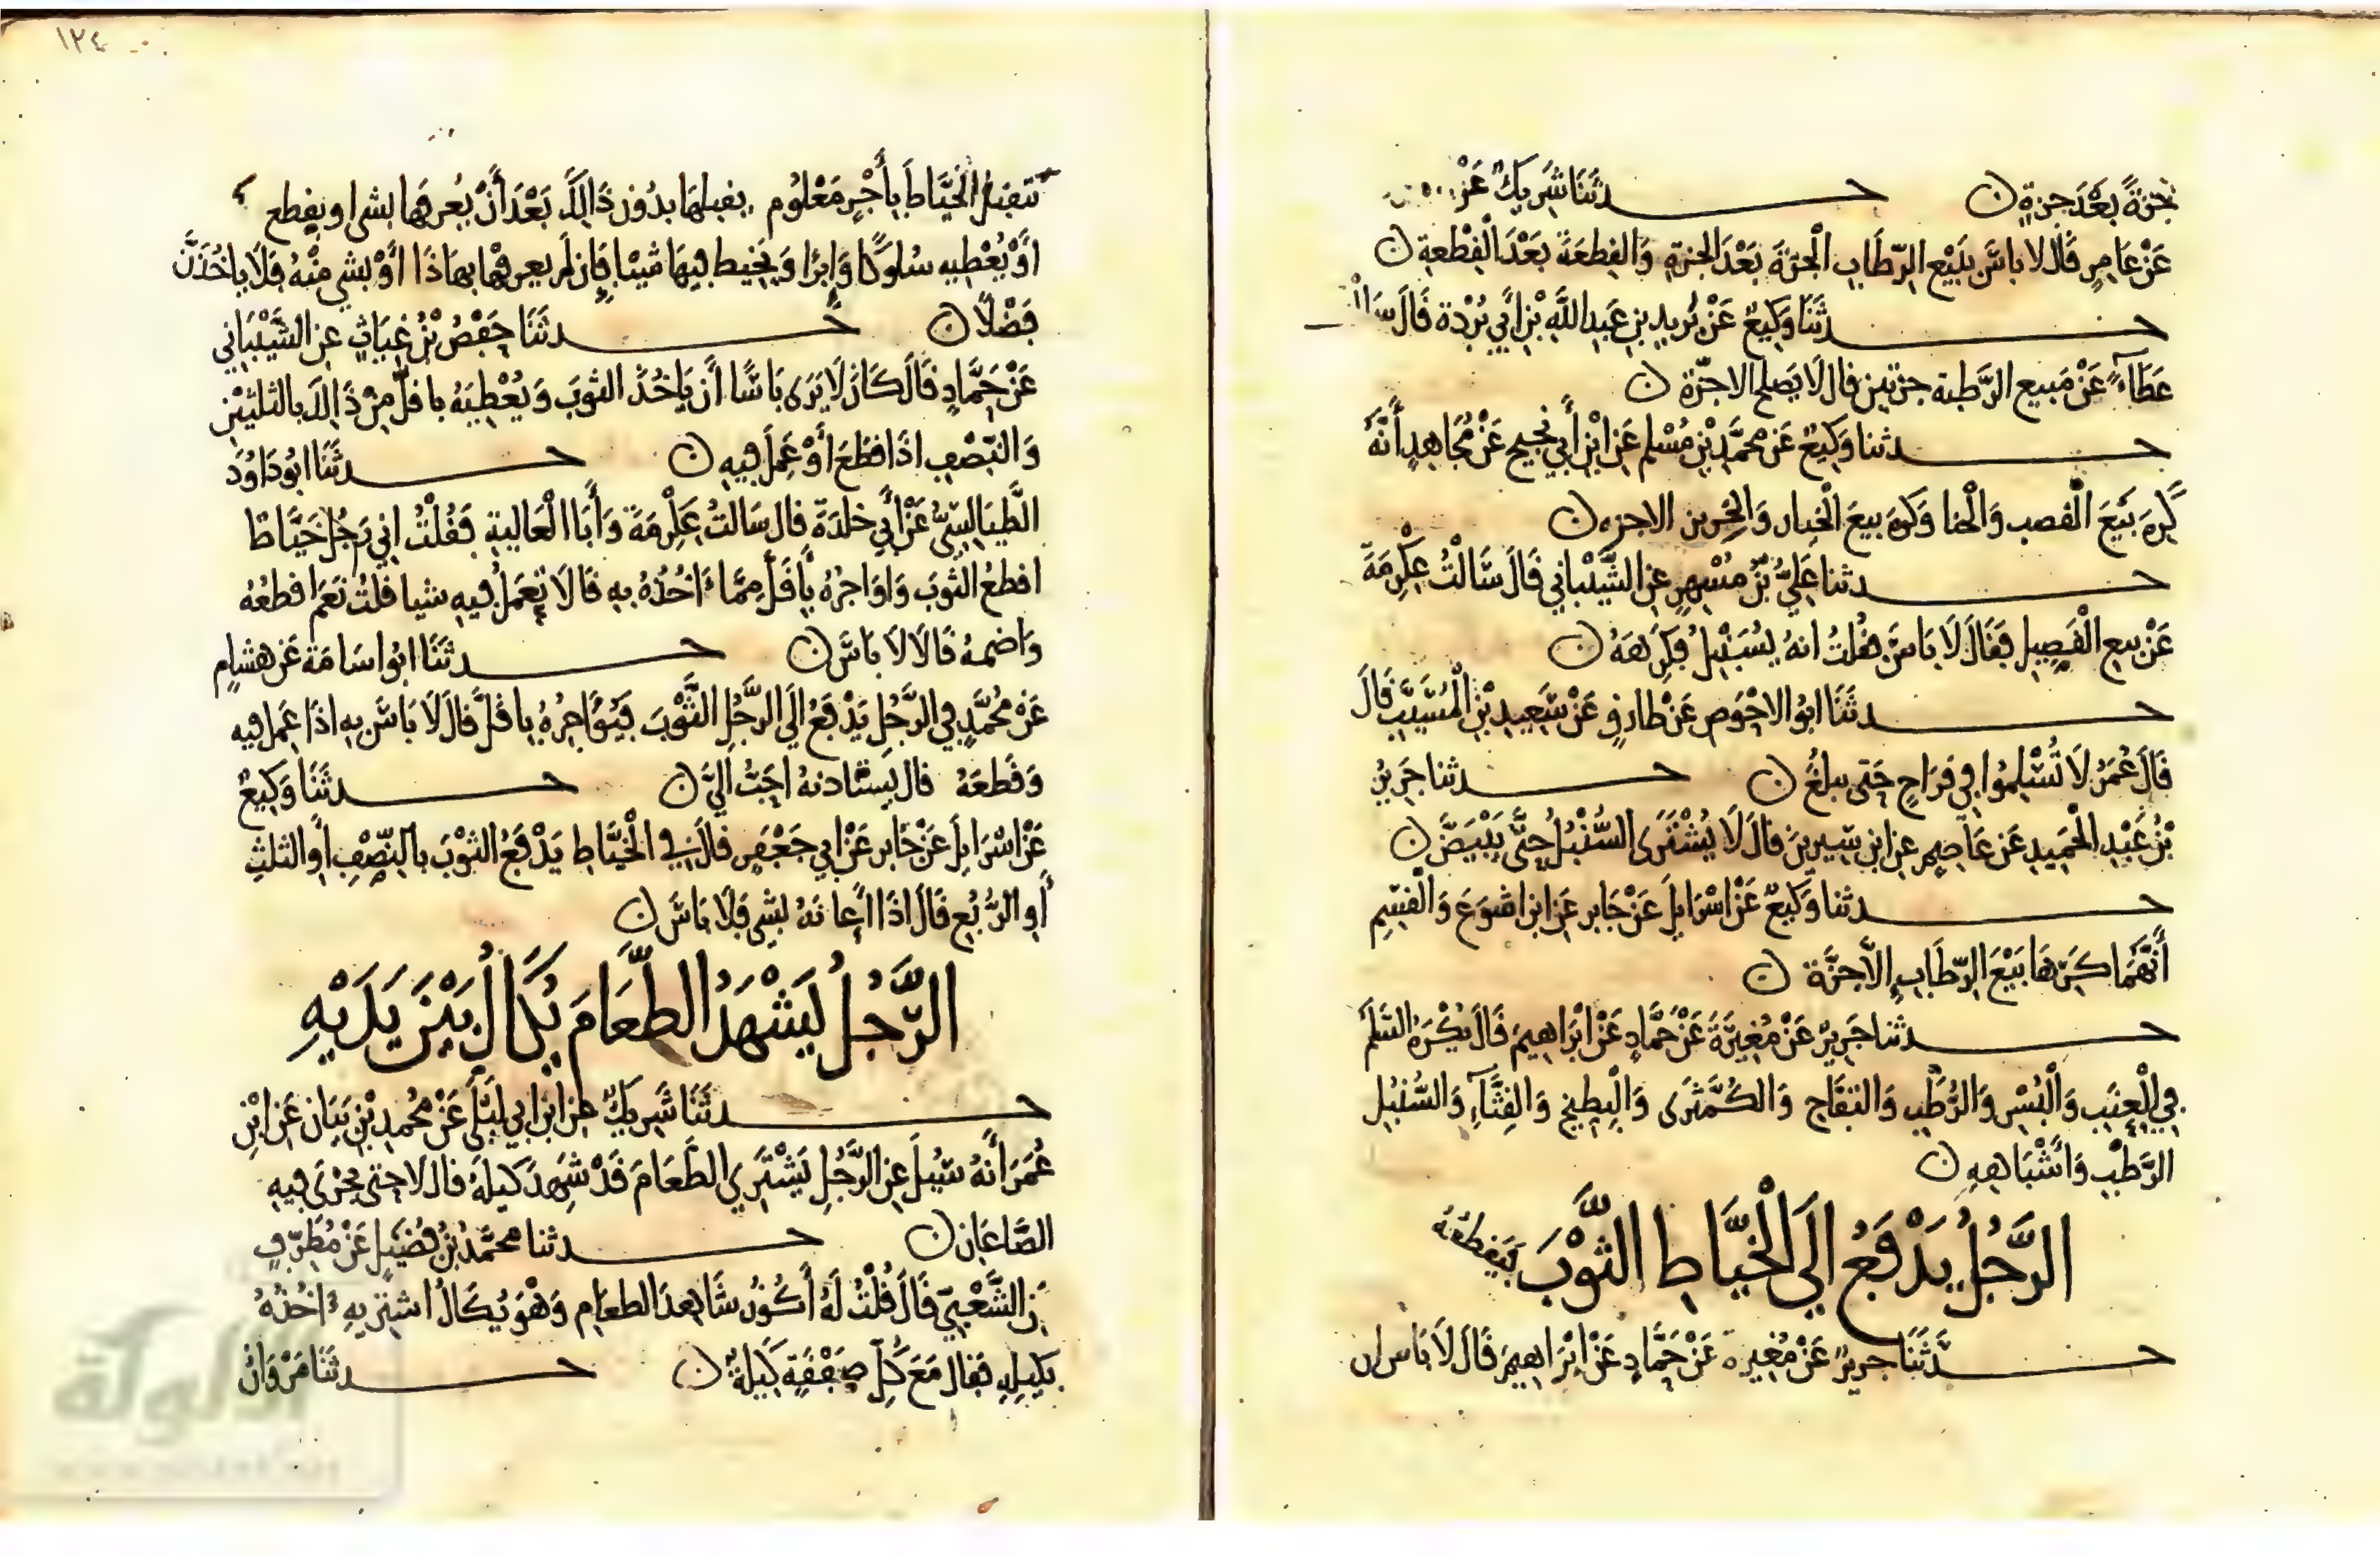 جزة بعد جزة ں حدثنا شريك عن
عن عامر قال لا باس ببيع الرطاب الجزة بعد الجزة والقطعة بعد القطعة ں
حدثنا وكيع عن بريد بن عبد الله بن أبي بردة قال سالت
عطاء عن مبيع الرطبة جزتين قال لا يصلح الا جزة ں
حدثنا وكيع عن محمد بن مسلم عن ابن أبي نجيح عن مجاهد أنه
كره بيع القصب والحنا وكره بيع الخيار والخربز الا جزه ں
حدثنا علي بن مسهر عن الشيباني قال سالت عكرمة
عن بيع القصيل فقال لا باس فقلت انه يسنبل فكرهه ں
حدثنا ابو الاحوص عن طارق عن سعيد بن المسيب قال
قال عمر لا تسلموا في فراخ حتى يبلغ ں حدثنا جرير
بن عبد الحميد عن عاصم عن ابن سيرين قال لا يشترى السنبل حتى يبيض ں
حدثنا وكيع عن اسرايل عن جابر عن ابن اشوع والقسم
أنهما كرها بيع الرطاب إلا جزة ں
حدثنا جرير عن مغيرة عن حماد عن ابراهيم قال يكره السلم
في العنب والبسر والرطب والتفاح والكمثرى والبطيخ والقثاء والسنبل
الرطب وأشباهه ں
الرجل يدفع الى الخياط الثوب فيقطعه
حدثنا جرير عن مغيرة عن حماد عن ابراهيم قال لا باس ان
١٢٤
تتقبل الخياط بأجر معلوم يقبلها بدون ذلك بعد أن يعرفها بشى او يقطع
أو يعطيه سلوكا وابرا ويخيط فيها شيا فإن لم يعرفها بهاذا أو بشي منه فلا ياخذن
فضلا ں حدثنا حفص بن غياث عن الشيباني
عن حماد قال كان لا يرى باسا أن ياخذ الثوب ويعطيه باقل من ذلك بالثلثين
والنصف اذا قطع أو عمل فيه ں حدثنا ابو داود
الطيالسي عن أبي خلدة قال سالت عكرمة وأبا العالية فقلت اني رجل خياط
اقطع الثوب واواجره بأقل مما ءاخذه به قالا تعمل فيه شيا قلت نعم اقطعه
واضمه قالا لا باس ں حدثنا ابو اسامة عن هشام
عن محمد في الرجل يدفع الى الرجل الثوب فيؤاجره باقل قال لا باس به اذا عمل فيه
وقطعه قال يستاذنه احب الي ں حدثنا وكيع
عن اسرايل عن جابر عن ابي جعفر قال في الخياط يدفع الثوب بالنصف أو الثلث
أو الربع قال اذا أعانه بشي فلا باس ں
الرجل يشهد الطعام يكال بين يديه
حدثنا شريك عن ابن ابي ليلى عن محمد بن بيان عن ابن
عمر أنه سئيل عن الرجل يشتري الطعام قد شهد كيله قال لا حتى يجرى فيه
الصاعان ں حدثنا محمد بن فضيل عن مطرف
عن الشعبي قال قلت له أكون شاهد الطعام وهو يكال اشتريه ءاخذه
بكيله فقال مع كل صفقة كيلة ں حدثنا مروان
الألوكة